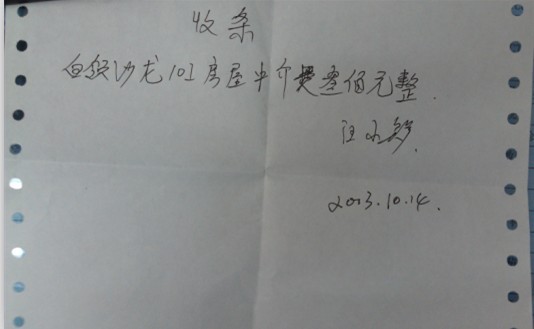 收条
白领沙龙101房屋中介费叁佰元整.
汪
2013.10.14.